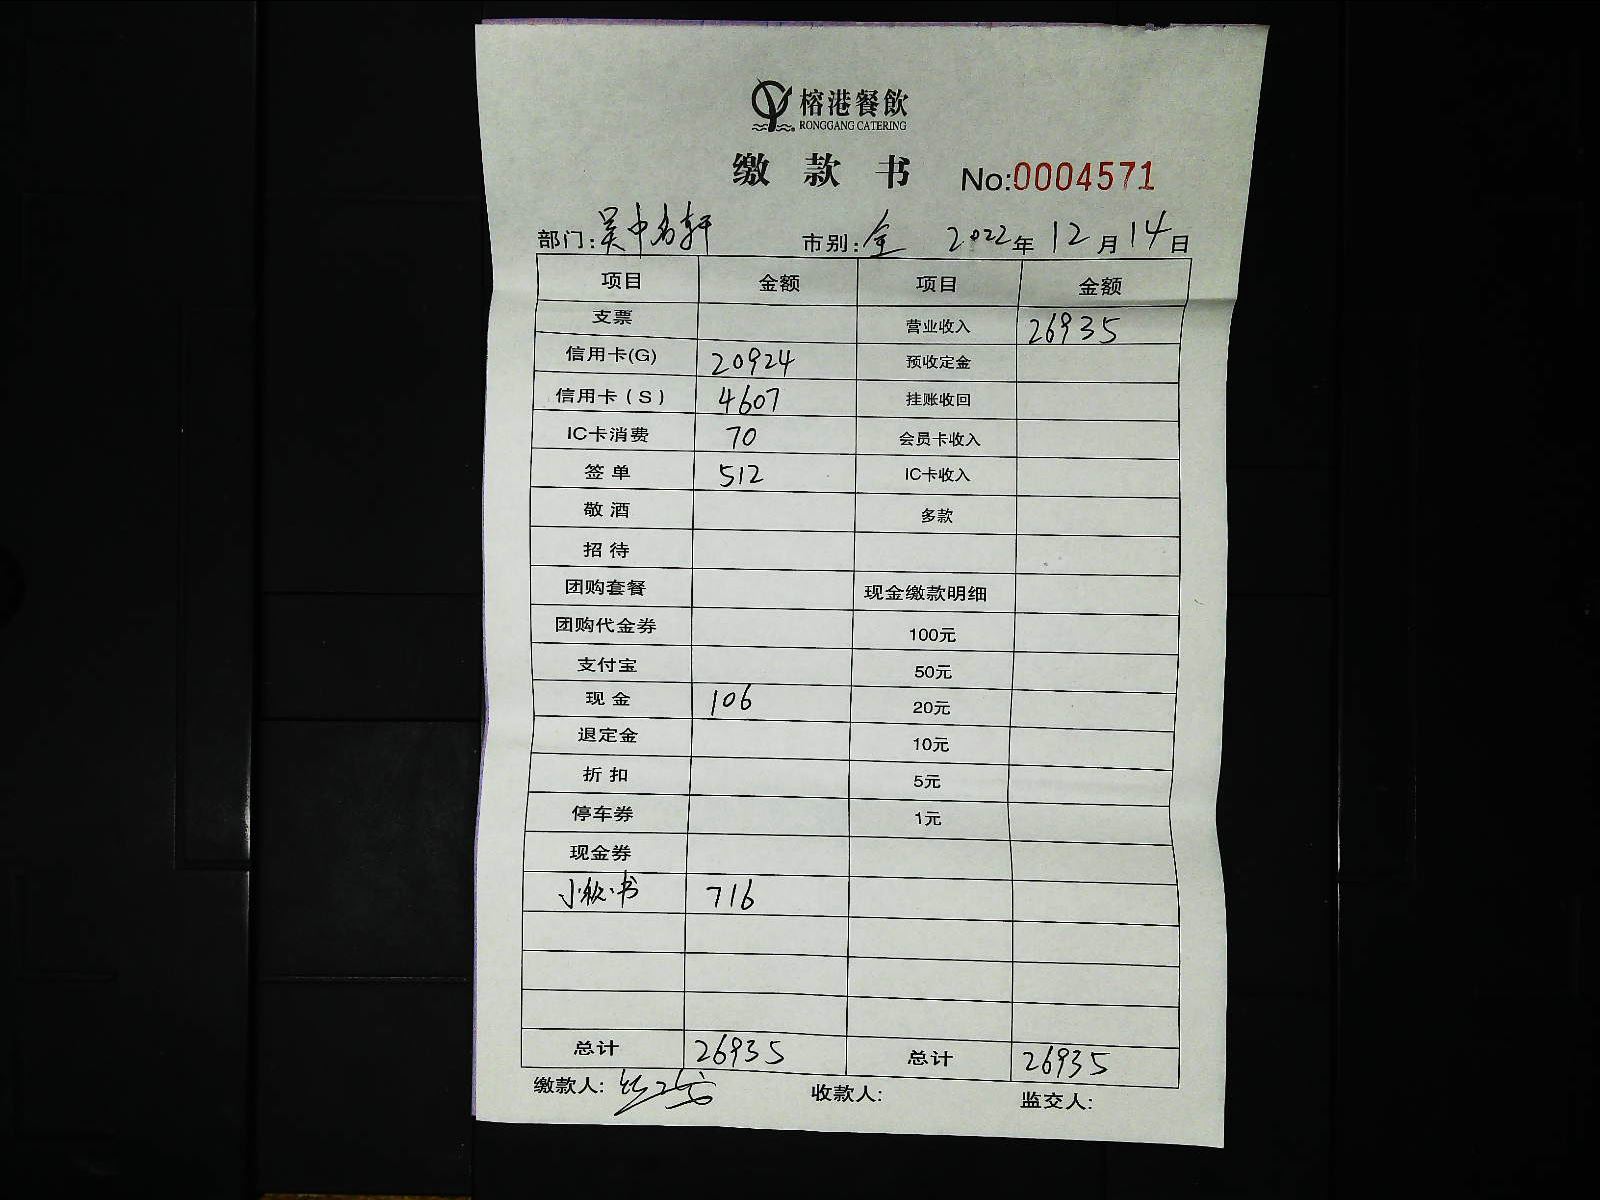 榕港餐飲
RONGGANG CATERING
缴款书 No:0004571
部门:吴中名轩 市别:全 2022年12月14日
项目 金额 项目 金额
支票 营业收入 26935
信用卡(G) 20924 预收定金
信用卡(S) 4607 挂账收回
IC卡消费 70 会员卡收入
签单 512 IC卡收入
敬酒 多款
招待
团购套餐 现金缴款明细
团购代金券 100元
支付宝 50元
现金 106 20元
退定金 10元
折扣 5元
停车券 1元
现金券
小秘书 716
总计 26935 总计 26935
缴款人: 收款人: 监交人: